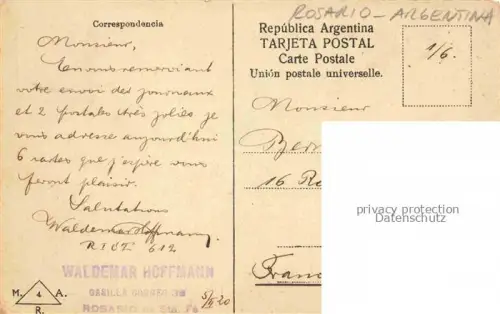 Correspondencia
Monsieur,
En vous remerciant
votre envoi des journaux
et 2 postales très jolies je
vous adresse aujourd'hui
6 cartes que j'espère vous
feront plaisir.
Salutations
Waldemar Hoffmann
RIOJA 612
WALDEMAR HOFFMANN
CASILLA CORREO
ROSARIO de Sta. Fé
5/6 20
M. 4 A.
R.
ROSARIO - ARGENTINA
República Argentina
TARJETA POSTAL
Carte Postale
Unión postale universelle.
1/6.
Monsieur
16 R
privacy protection
Datenschutz
Franc